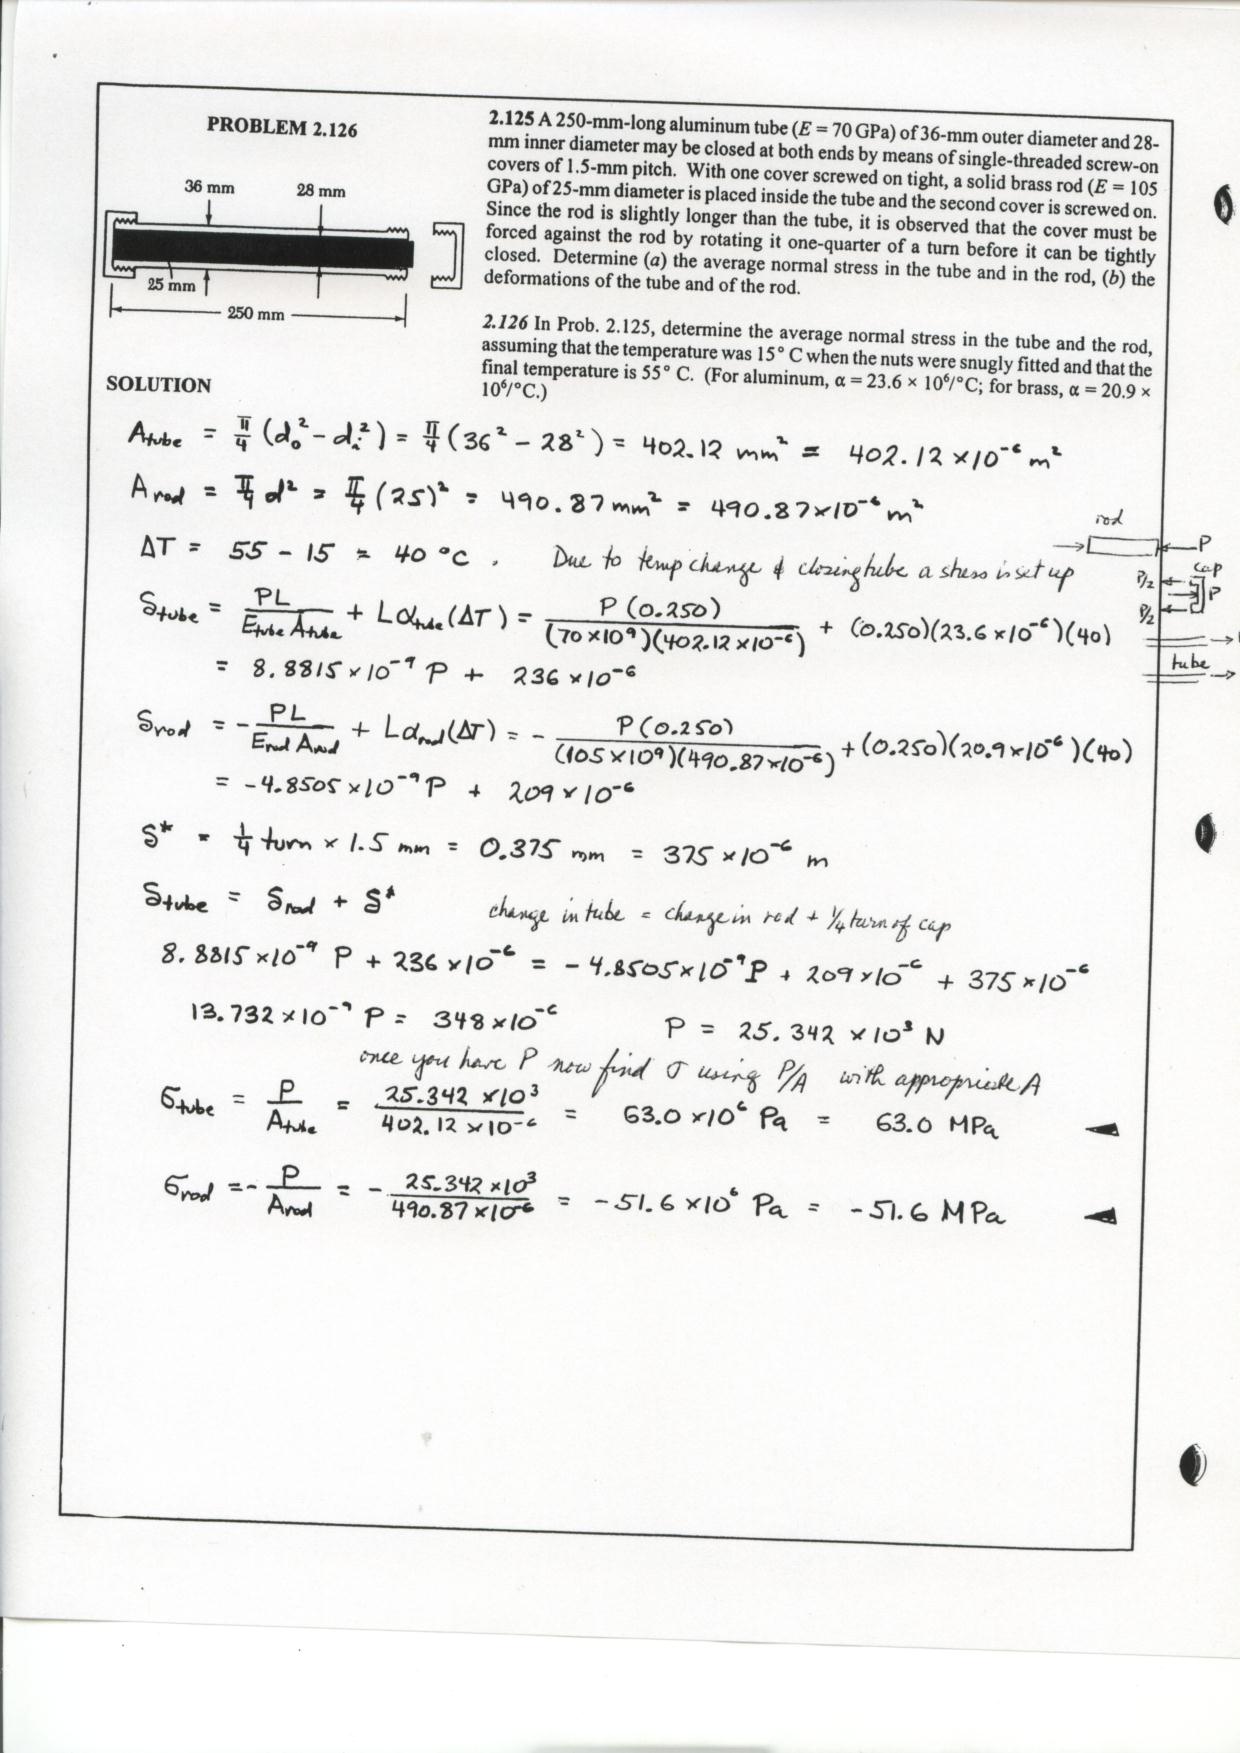 PROBLEM 2.126
36 mm
28 mm
25 mm
250 mm
2.125 A 250-mm-long aluminum tube (E = 70 GPa) of 36-mm outer diameter and 28-
mm inner diameter may be closed at both ends by means of single-threaded screw-on
covers of 1.5-mm pitch. With one cover screwed on tight, a solid brass rod (E = 105
GPa) of 25-mm diameter is placed inside the tube and the second cover is screwed on.
Since the rod is slightly longer than the tube, it is observed that the cover must be
forced against the rod by rotating it one-quarter of a turn before it can be tightly
closed. Determine (a) the average normal stress in the tube and in the rod, (b) the
deformations of the tube and of the rod.
2.126 In Prob. 2.125, determine the average normal stress in the tube and the rod,
assuming that the temperature was 15° C when the nuts were snugly fitted and that the
final temperature is 55° C. (For aluminum, α = 23.6 × 10⁶/°C; for brass, α = 20.9 ×
10⁶/°C.)
SOLUTION
A_tube = π/4 (d_o² - d_i²) = π/4 (36² - 28²) = 402.12 mm² = 402.12 ×10⁻⁶ m²
A_rod = π/4 d² = π/4 (25)² = 490.87 mm² = 490.87×10⁻⁶ m²
ΔT = 55 - 15 = 40 °C. Due to temp change & closing tube a stress is set up
rod
P
cap
P/2
P
P/2
tube
δ_tube = PL/(E_tube A_tube) + Lα_tube(ΔT) = P(0.250)/((70×10⁹)(402.12×10⁻⁶)) + (0.250)(23.6×10⁻⁶)(40)
= 8.8815×10⁻⁹ P + 236×10⁻⁶
δ_rod = -PL/(E_rod A_rod) + Lα_rod(ΔT) = - P(0.250)/((105×10⁹)(490.87×10⁻⁶)) + (0.250)(20.9×10⁻⁶)(40)
= -4.8505×10⁻⁹ P + 209×10⁻⁶
δ* = 1/4 turn × 1.5 mm = 0.375 mm = 375×10⁻⁶ m
δ_tube = δ_rod + δ* change in tube = change in rod + 1/4 turn of cap
8.8815×10⁻⁹ P + 236×10⁻⁶ = -4.8505×10⁻⁹P + 209×10⁻⁶ + 375×10⁻⁶
13.732×10⁻⁹ P = 348×10⁻⁶ P = 25.342 ×10³ N
once you have P now find σ using P/A with appropriate A
σ_tube = P/A_tube = 25.342×10³/402.12×10⁻⁶ = 63.0×10⁶ Pa = 63.0 MPa
σ_rod = -P/A_rod = - 25.342×10³/490.87×10⁻⁶ = -51.6×10⁶ Pa = -51.6 MPa